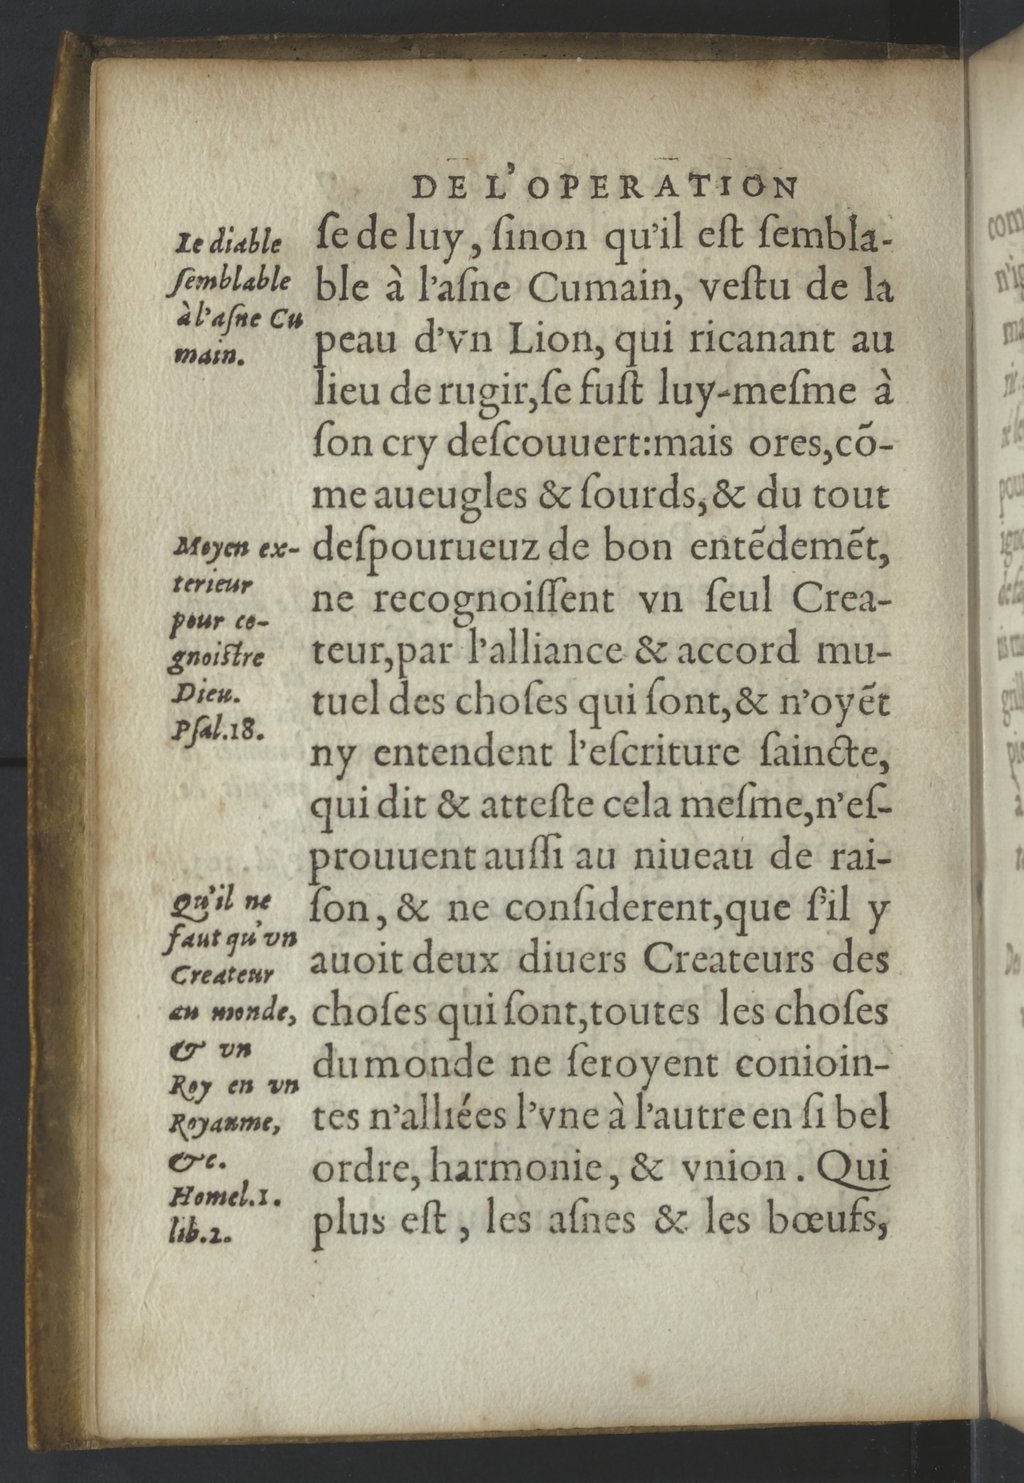 DE L'OPERATION
ſe de luy, ſinon qu'il eſt ſembla-
ble à l'aſne Cumain, veſtu de la
peau d'vn Lion, qui ricanant au
lieu de rugir, ſe fuſt luy-meſme à
ſon cry deſcouuert: mais ores, cõ-
me aueugles & ſourds, & du tout
deſpourueuz de bon entẽdemẽt,
ne recognoiſſent vn ſeul Crea-
teur, par l'alliance & accord mu-
tuel des choſes qui ſont, & n'oyẽt
ny entendent l'eſcriture ſaincte,
qui dit & atteſte cela meſme, n'eſ-
prouuent auſſi au niueau de rai-
ſon, & ne conſiderent, que ſ'il y
auoit deux diuers Createurs des
choſes qui ſont, toutes les choſes
du monde ne ſeroyent conioin-
tes n'alliées l'vne à l'autre en ſi bel
ordre, harmonie, & vnion. Qui
plus eſt, les aſnes & les bœufs,
Le diable
ſemblable
à l'aſne Cu
main.
Moyen ex-
terieur
pour co-
gnoiſtre
Dieu.
Pſal.18.
Qu'il ne
faut qu'vn
Createur
au monde,
& vn
Roy en vn
Royaume,
&c.
Homel.1.
lib.2.